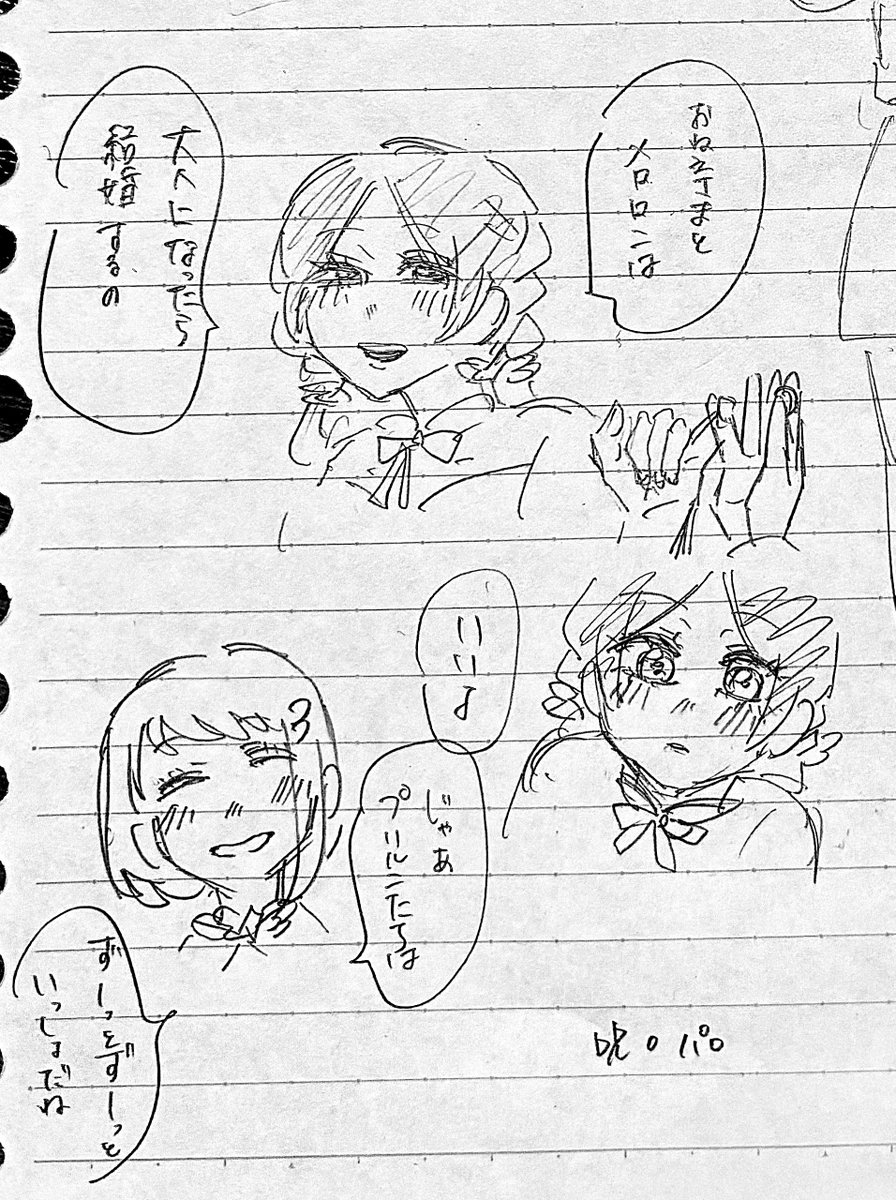 おねえさまと
メロロンは
大人になったら
結婚するの
いいよ
じゃあ
プリルンたちは
ずーっとずーっと
いっしょだね
呪〇パロ